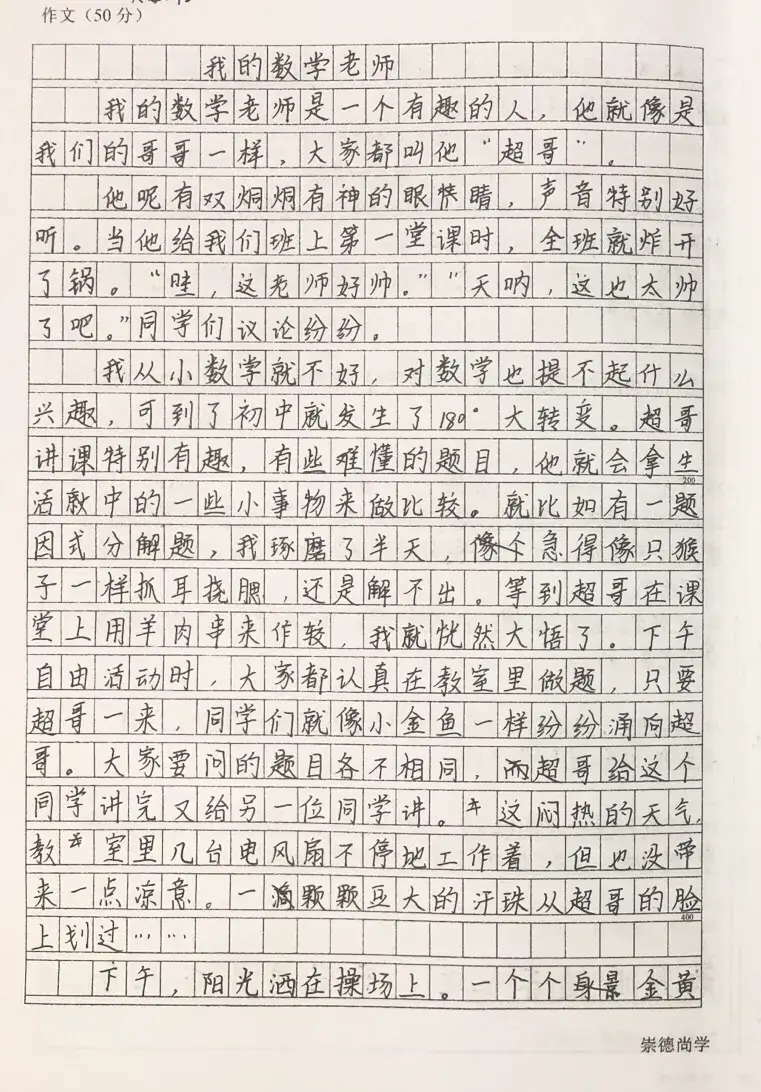 作文（50分）
我的数学老师
我的数学老师是一个有趣的人，他就像是
我们的哥哥一样，大家都叫他“超哥”。
他呢有双炯炯有神的眼睛，声音特别好
听。当他给我们班上第一堂课时，全班就炸开
了锅。“哇，这老师好帅。”“天呐，这也太帅
了吧。”同学们议论纷纷。
我从小数学就不好，对数学也提不起什么
兴趣，可到了初中就发生了180°大转变。超哥
讲课特别有趣，有些难懂的题目，他就会拿生
200
活中的一些小事物来做比较。就比如有一题
因式分解题，我琢磨了半天，急得像只猴
子一样抓耳挠腮，还是解不出。等到超哥在课
堂上用羊肉串来作较，我就恍然大悟了。下午
自由活动时，大家都认真在教室里做题，只要
超哥一来，同学们就像小金鱼一样纷纷涌向超
哥。大家要问的题目各不相同，而超哥给这个
同学讲完又给另一位同学讲。这闷热的天气，
教室里几台电风扇不停地工作着，但也没带
来一点凉意。一颗颗豆大的汗珠从超哥的脸
400
上划过……
下午，阳光洒在操场上。一个个身影金黄
崇德尚学